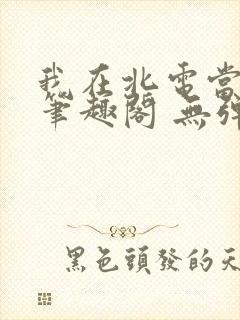 我在北電當
筆趣閣 無彈
黑色頭發的天